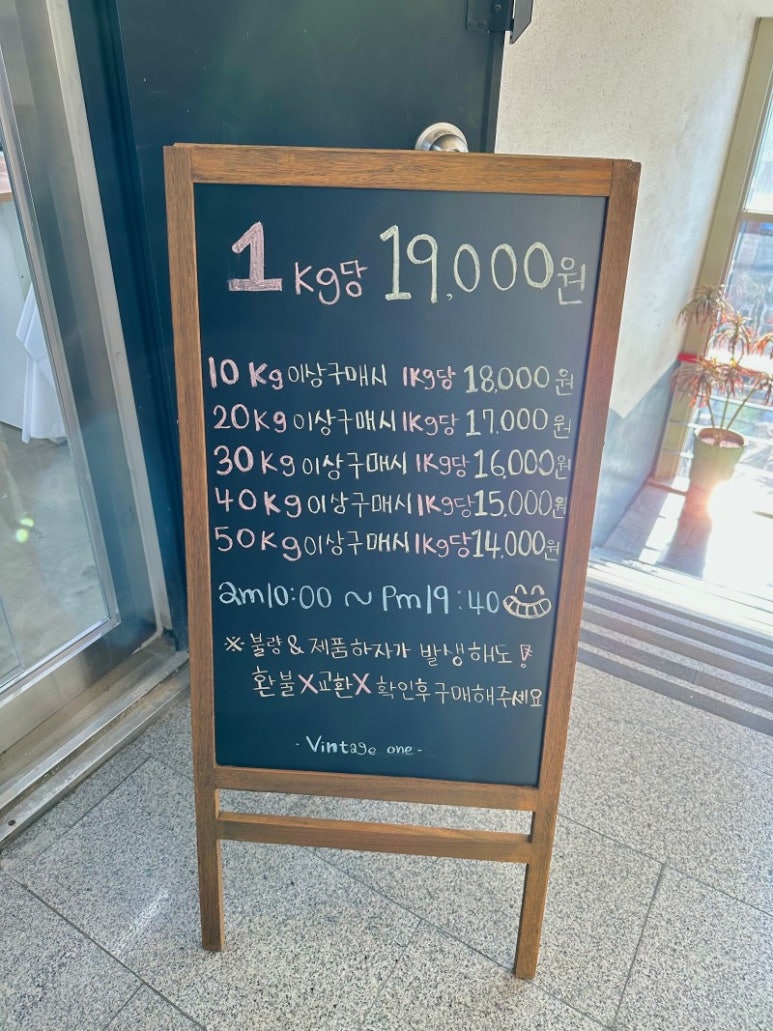 1 kg당 19,000원
10 Kg 이상구매시 1kg당 18,000 원
20Kg 이상구매시 1kg당 17,000 원
30 Kg 이상구매시 1kg당 16,000원
40 Kg 이상구매시 1kg당 15,000원
50 Kg 이상구매시 1kg당 14,000원
am10:00 ~ Pm19:40
※ 불량 & 제품하자가 발생해도!
환불X교환X 확인후구매해주세요
- Vintage one -